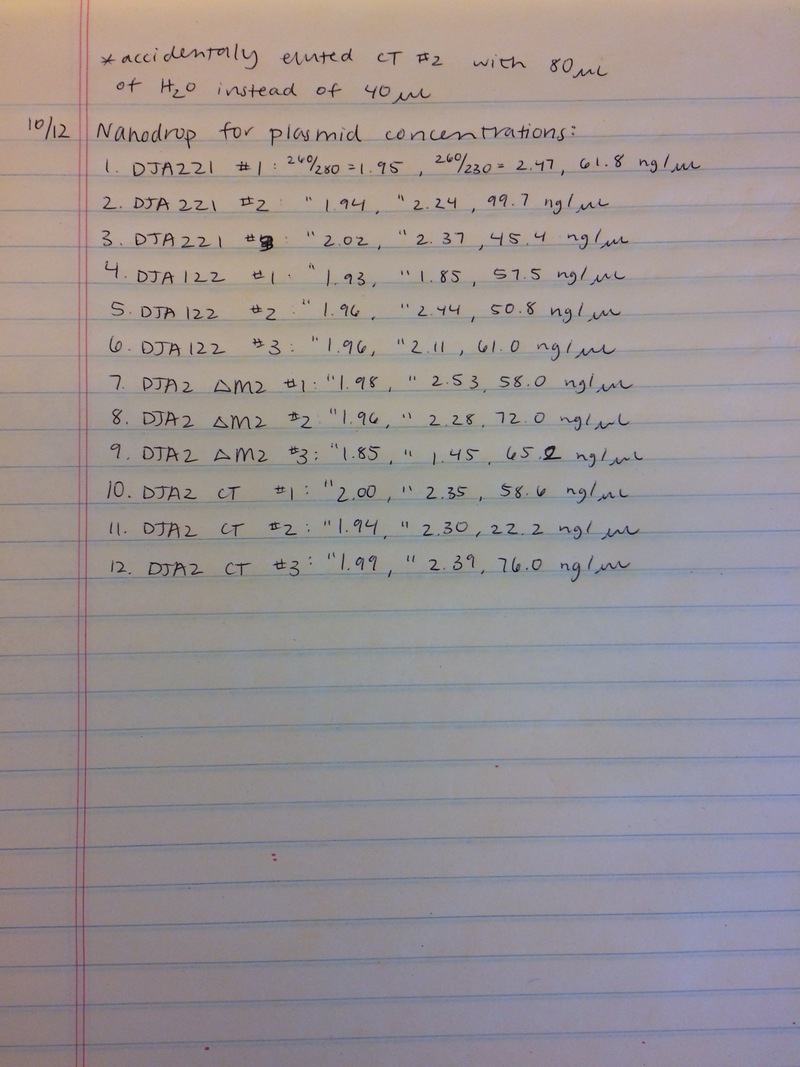 * accidentally eluted CT #2 with 80 µL
of H2O instead of 40 µL
10/12 Nanodrop for plasmid concentrations:
1. DJA221 #1: 260/280 = 1.95, 260/230 = 2.47, 61.8 ng/µL
2. DJA 221 #2 " 1.94, " 2.24, 99.7 ng/µL
3. DJA221 #3: " 2.02, " 2.37, 45.4 ng/µL
4. DJA 122 #1: " 1.93, " 1.85, 57.5 ng/µL
5. DJA 122 #2: " 1.96, " 2.44, 50.8 ng/µL
6. DJA 122 #3: " 1.96, " 2.11, 61.0 ng/µL
7. DJA2 ΔM2 #1: " 1.98, " 2.53, 58.0 ng/µL
8. DJA2 ΔM2 #2 " 1.96, " 2.28, 72.0 ng/µL
9. DJA2 ΔM2 #3: " 1.85, " 1.45, 65.2 ng/µL
10. DJA2 CT #1: " 2.00, " 2.35, 58.6 ng/µL
11. DJA2 CT #2: " 1.94, " 2.30, 22.2 ng/µL
12. DJA2 CT #3: " 1.99, " 2.39, 76.0 ng/µL